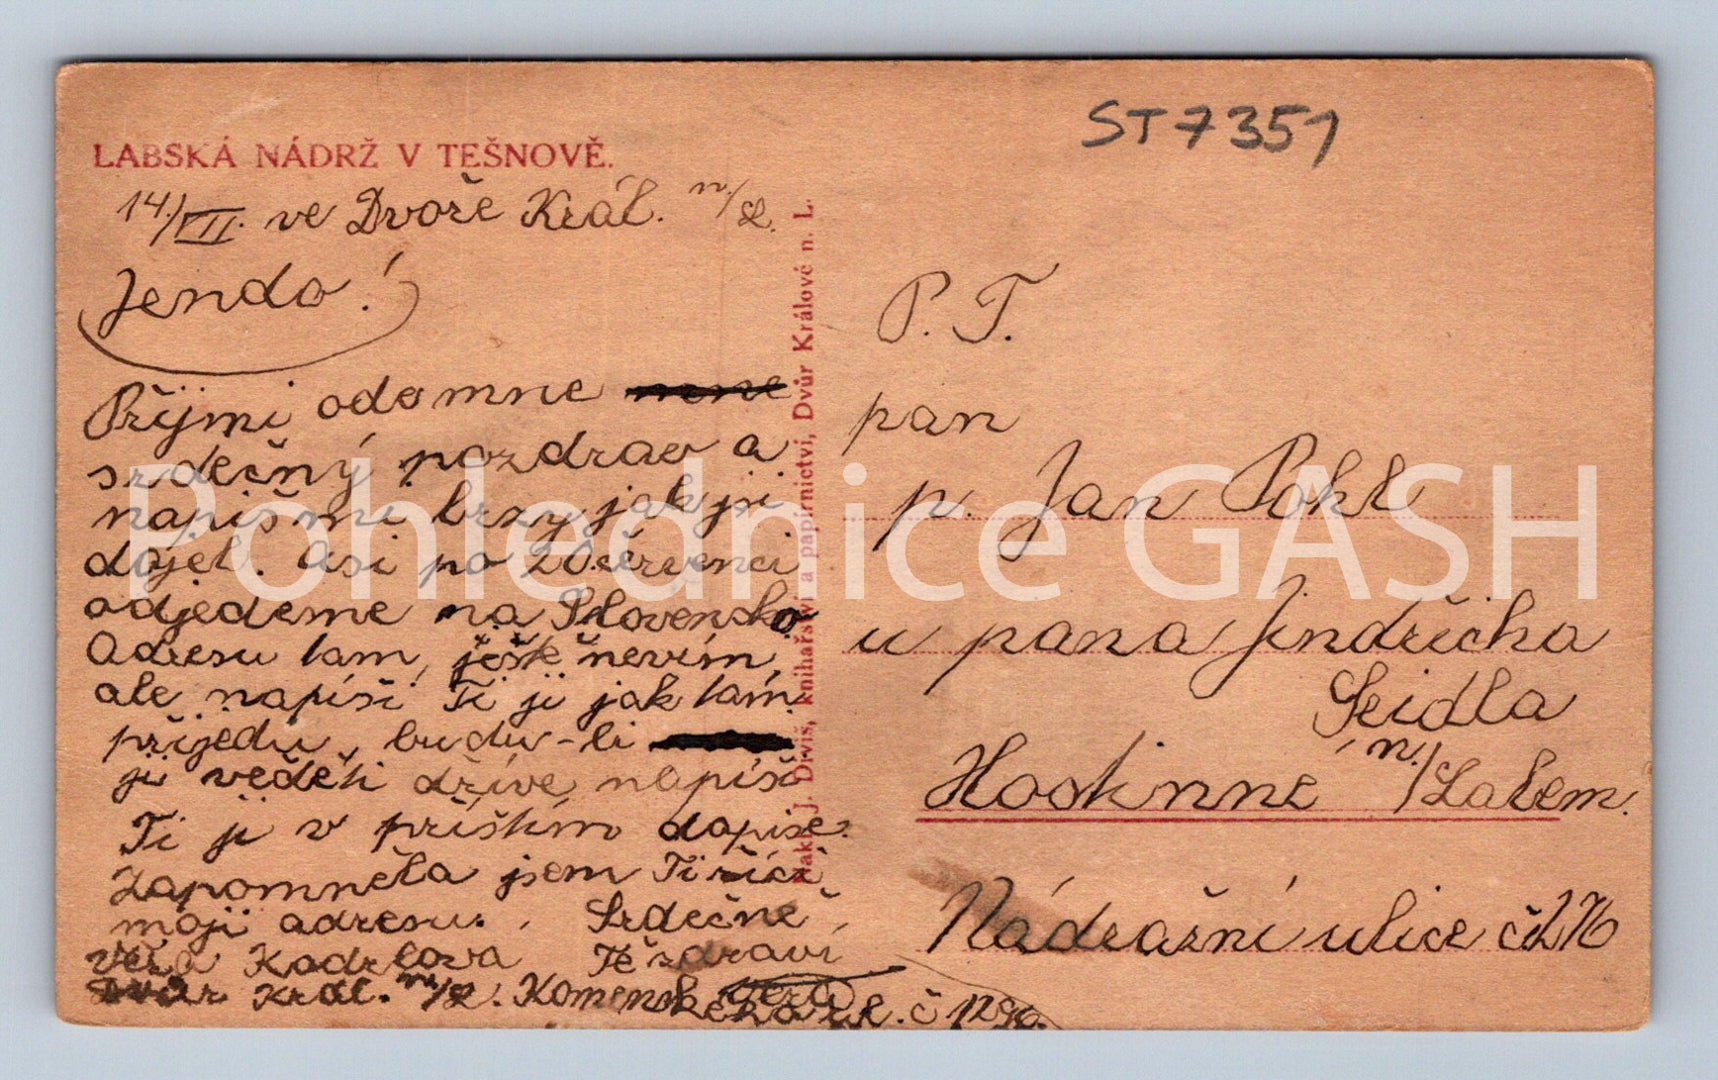 ST7351
LABSKÁ NÁDRŽ V TEŠNOVĚ.
14./VII. ve Dvoře Král. n./L.
Jendo!
Přijmi odemne
srdečný pozdrav a
napiš mi brzy jak jsi
dojel. Asi po 20 červenci
odjedeme na Slovensko
Adresu tam ještě nevím,
ale napíši Ti ji jak tam
přijedu, budu-li
ji věděti dříve napíši
Ti ji v příštím dopise.
Zapomněla jsem Ti říci
moji adresu. Srdečně
Věra Kadrlova Tě zdraví
Dvůr Král. n./L. Komenskeho ul. č
Nakl. J. Diviš, knihařství a papírnictví, Dvůr Králové n. L.
P. T.
pan
p. Jan Pohl
u pana Jindřicha
Seidla
Hostinne n./Labem.
Nádražní ulice č. 276
Pohlednice GASH